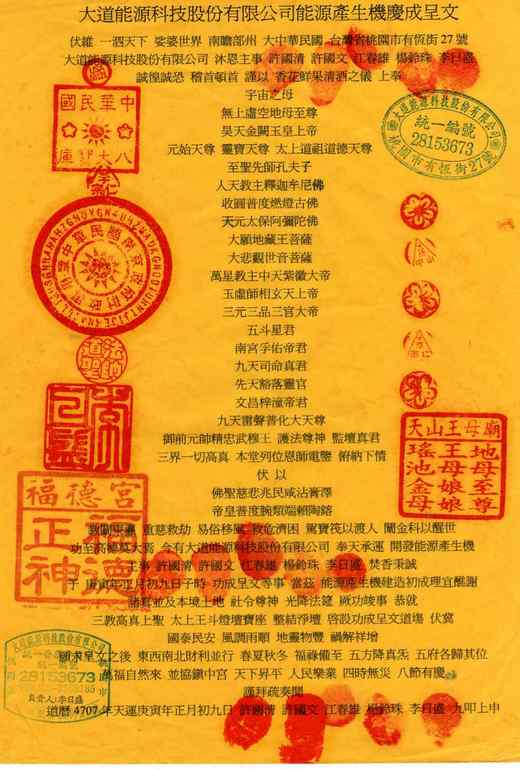 大道能源科技股份有限公司能源產生機慶成呈文
伏維 一泗天下 娑婆世界 南瞻部州 大中華民國 台灣省桃園市有恆街27號
大道能源科技股份有限公司 沐恩主事 許國清 許國文 江春雄 楊鈴珠 李日盛
誠惶誠恐 稽首頓首 謹以 香花鮮果清酒之儀 上奉
宇宙之母
無上虛空地母至尊
昊天金闕玉皇上帝
元始天尊 靈寶天尊 太上道祖道德天尊
至聖先師孔夫子
人天教主釋迦牟尼佛
收圓普度燃燈古佛
天元太保阿彌陀佛
大願地藏王菩薩
大悲觀世音菩薩
萬星教主中天紫微大帝
玉虛師相玄天上帝
三元三品三官大帝
五斗星君
南宮孚佑帝君
九天司命真君
先天豁落靈官
文昌梓潼帝君
九天雷聲普化大天尊
御前元帥精忠武穆王 護法尊神 監壇真君
三界一切高真 本堂列位恩師電鑒 俯納下情
伏 以
佛聖慈悲兆民咸沾膏澤
帝皇普度腕類端賴陶鎔
重慈救劫 易俗移風 救危濟困 駕寶筏以渡人 闡金科以醒世
功至高德莫大焉 今有大道能源科技股份有限公司 奉天承運 開發能源產生機
主事 許國清 許國文 江春雄 楊鈴珠 李日盛 焚香秉誠
于 庚寅年正月初九日子時 功成呈文等事 當茲 能源產生機建造初成理宜酬謝
諸真並及本境土地 社令尊神 光降法筵 厥功竣事 恭就
三教高真上聖 太上王斗燈壇寶座 整結淨壇 啓設功成呈文道場 伏冀
國泰民安 風調雨順 地靈物豐 禍解祥增
願求呈文之後 東西南北財利並行 春夏秋冬 福祿備至 五方降真炁 五府各歸其位
萬福自然來 並協鎮中宮 天下昇平 人民樂業 四時無災 八節有慶
謹拜疏奏聞
道曆4707年天運庚寅年正月初九日 許國清 許國文 江春雄 楊鈴珠 李日盛 九叩上申
中華民國
大道能源科技股份有限公司
統一編號
28153673
桃園市有恆街27號
天山王母廟
地母至尊
王母娘娘
瑤池金母
福德宮
福德正神
28153673
負責人:李日盛